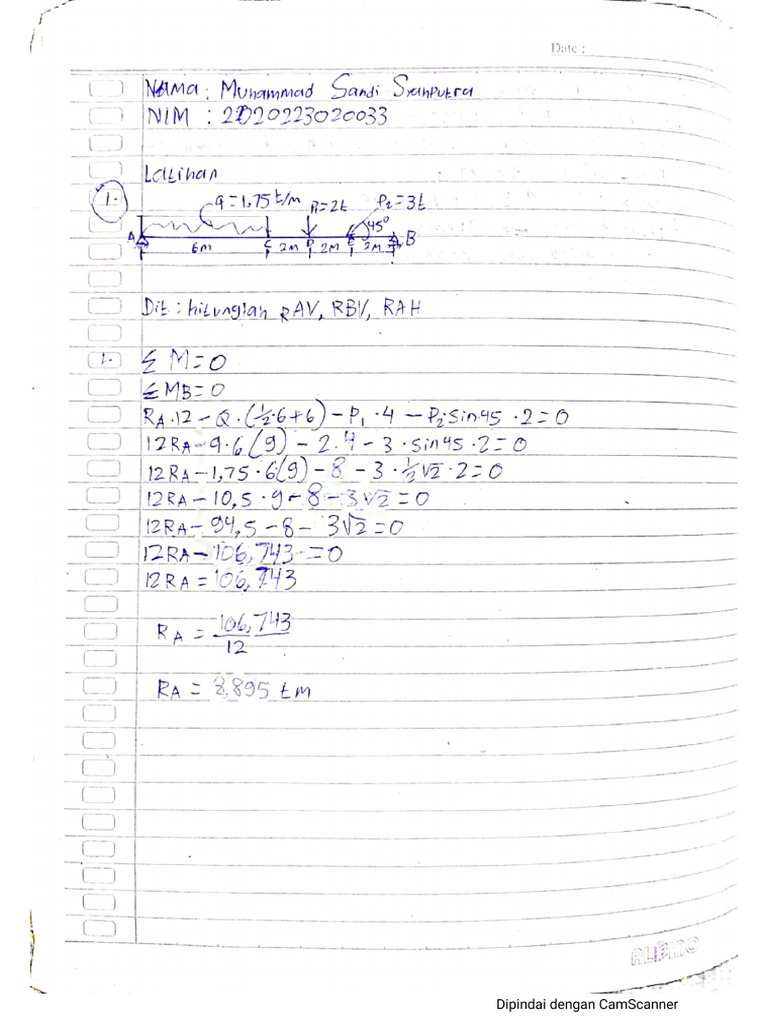 Date :
Nama : Muhammad Sandi Syahputra
NIM : 2020223020033
Latihan
1.
q = 1,75 t/m P1=2t P2=3t
45°
A B
6m C 2m D 2m E 2m
Dit : hitunglah RAV, RBV, RAH
1. Σ M = 0
Σ MB = 0
RA.12 - Q.(½.6+6) - P1.4 - P2 sin45.2 = 0
12RA - q.6(9) - 2.4 - 3.sin45.2 = 0
12RA - 1,75.6(9) - 8 - 3.½√2.2 = 0
12RA - 10,5.9 - 8 - 3√2 = 0
12RA - 94,5 - 8 - 3√2 = 0
12RA - 106,743 = 0
12RA = 106,743
RA = 106,743
12
RA = 8,895 tm
Dipindai dengan CamScanner